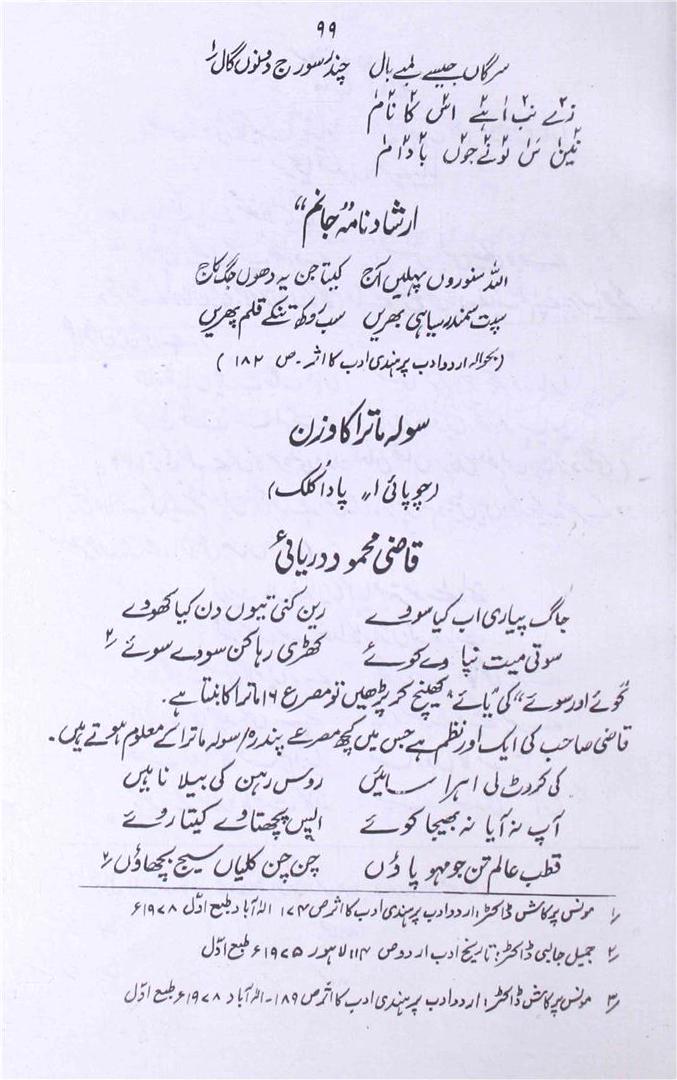 ۹۹
سرگاں جیسے لمبے بال   چندر سورج دونوں گال ۱؎
زے نب اہے اس کا نام
نین س لونے جوں بادام
ارشاد نامہ "جانم"
اللہ سنوروں پہلیں آج   کیتا جن یہ دھوں جگ کاج
سپت سمندر سیاہی بھریں   سب روکھ تنکے قلم پھریں
(بحوالہ اردو ادب پر ہندی ادب کا اثر۔ ص ۱۸۲ )
سولہ ماترا کا وزن
(چوپائی ۱؍ پاداکلک)
قاضی محمود دریائیؒ
جاگ پیاری اب کیا سووے   رین کٹی تیوں دن کیا کھووے
سوتی میت نپاوے کوئے   کھڑی رہا کن سودے سوئے ۲؎
"کوئے اور سوئے" کی "یائے" کھینچ کر پڑھیں تو مصرع ۱۶ ماترا کا بنتا ہے۔
قاضی صاحب کی ایک اور نظم ہے جس میں کچھ مصرعے پندرہ/سولہ ماترا کے معلوم ہوتے ہیں۔
کی کروٹ لی اہرا سائیں   روس رہن کی بیلا ناہیں
آپ نہ آیا نہ بھیجا کوئے   اپس پچھتاوے کیتا روے
قطب عالم تن جو مہو پاؤں   چن چن کلیاں سیج بچھاؤں ۲؎
۱؎ مونس پرکاش ڈاکٹر: اردو ادب پر ہندی ادب کا اثر ص ۱۷۴ الہ آباد طبع اوّل ۱۹۷۸ء
۲؎ جمیل جالبی ڈاکٹر: تاریخ ادب اردو ص ۱۱۴ لاہور ۱۹۷۵ء طبع اوّل
۳؎ مونس پرکاش ڈاکٹر: اردو ادب پر ہندی ادب کا اثر ص ۱۸۹۔ الہ آباد ۱۹۷۸ء طبع اوّل